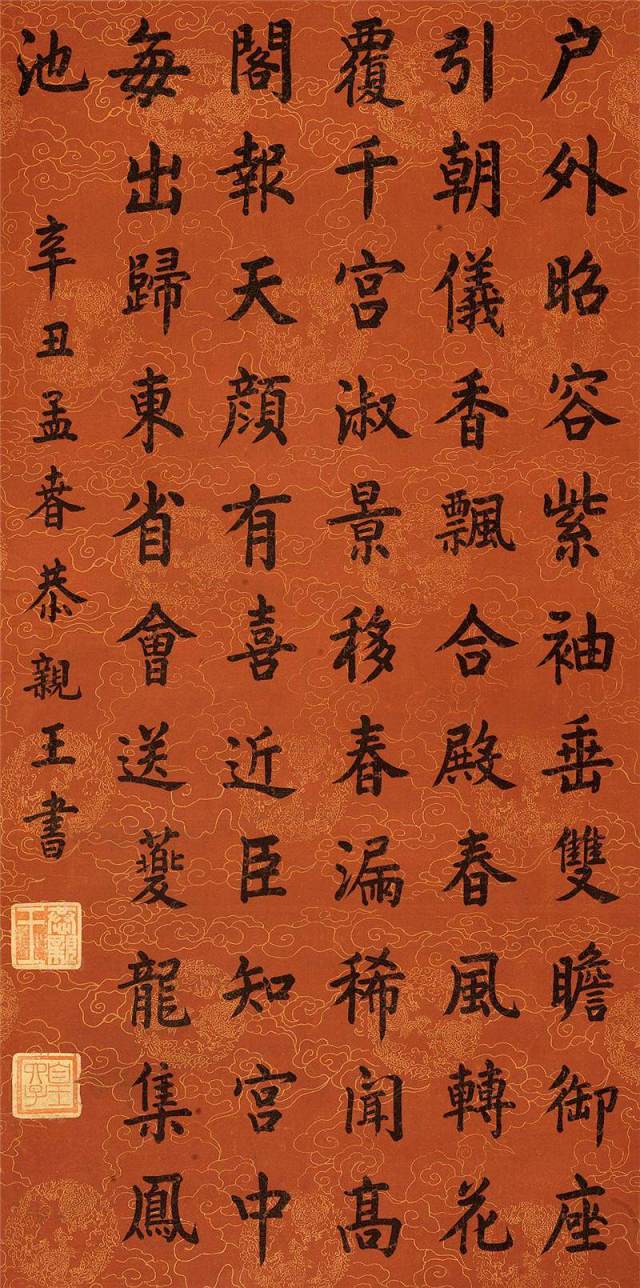 户外昭容紫袖垂雙瞻御座
引朝儀香飄合殿春風轉花
覆千宫淑景移春漏稀聞髙
閣報天顔有喜近臣知宫中
每出歸東省會送夔龍集鳳
池
辛丑孟春恭親王書